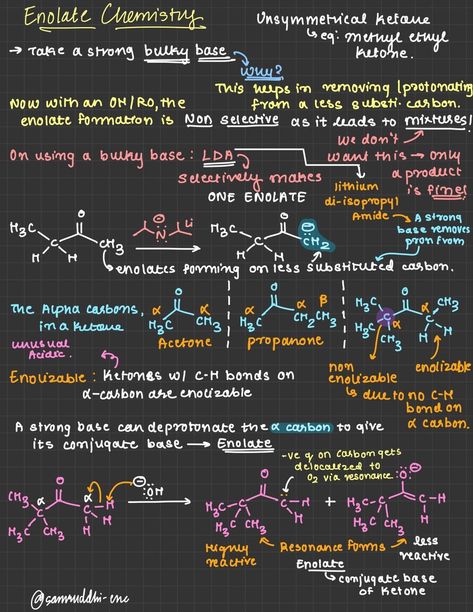 Enolate Chemistry
Unsymmetrical Ketone
↳ eg: methyl ethyl
ketone.
→ Take a strong bulky base
why?
This helps in removing/protonating
from a less substi. carbon.
Now with an OH/RO, the
enolate formation is Non selective as it leads to mixtures!
we don't
want this → only
a product
is fine!
On using a bulky base: LDA
selectively makes
ONE ENOLATE
lithium
di-isopropyl
Amide
→ A strong
base removes
pron from
H3C O CH3 H H
⊖ N Li
H3C O ⊖ CH2 H H
enolates forming on less substituted carbon.
The Alpha carbons,
in a ketone
unusual
Acidic.
α O α
H3C CH3
Acetone
α O α β
H3C CH2CH3
propanone
H3C O CH3
H3C C α α C H
CH3 H
non
enolizable
enolizable
↳ due to no C-H
bond on
α carbon.
Enolizable: Ketones w/ C-H bonds on
α-carbon are enolizable
A strong base can deprotonate the α carbon to give
its conjugate base → Enolate
-ve q on carbon gets
delocalized to
O2 via resonance.
CH3 α O α H
H3C C C H
CH3 H
⊖ OH
H3C O ⊖
H3C C C-H
CH3 H
+
H3C O ⊖
H3C C C-H
CH3 H
Highly
reactive
Resonance forms
less
reactive
Enolate
↳ conjugate base
of Ketone